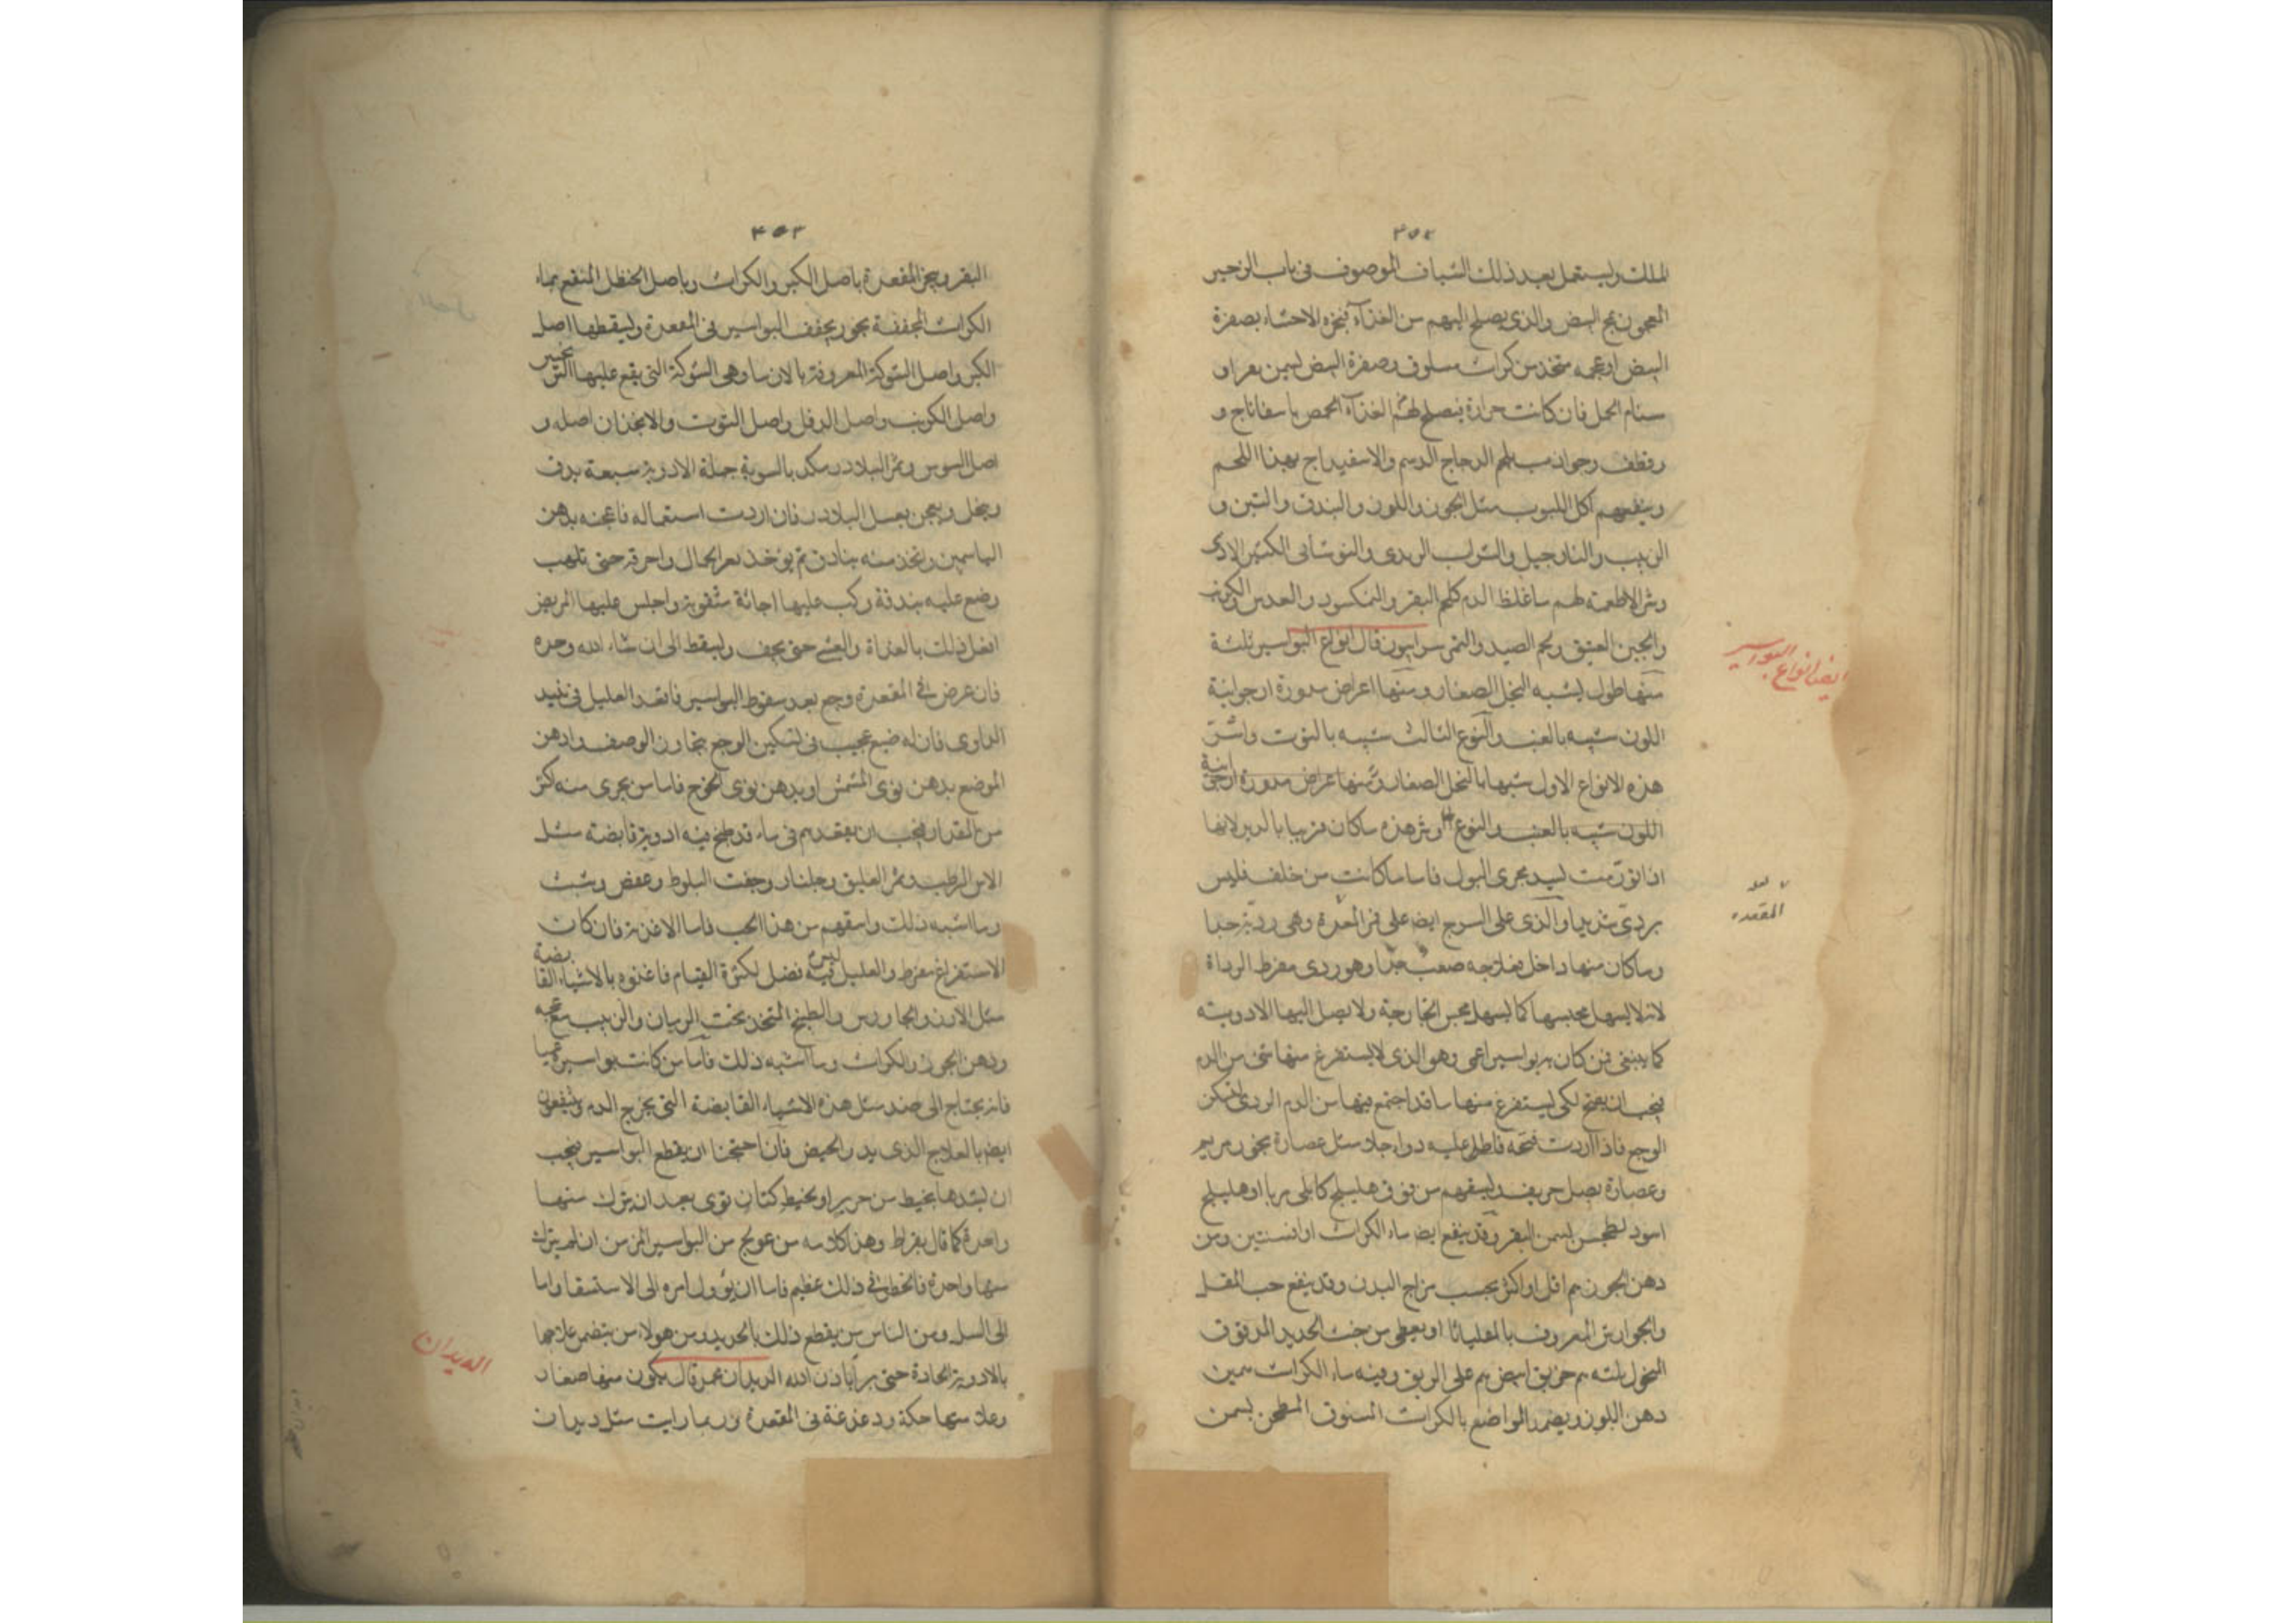 ٣٥٢
الملك ويستعمل بعد ذلك الشياف الموصوف فى باب الزحير
المعجون بمخ البيض والذى يصلح اليهم من الغذآء فبخره الاحشاء بصفرة
البيض او عجه متخذ من كراث مسلوق وصفرة البيض بسمن بقر او
سنام الجمل فان كانت حرارة فيصلح لهم الغذآء الحمص باسفاناج و
وقطف وجوذاب بلحم الدجاج الدسم والاسفيداج بهذا اللحم
وينفعهم اكل اللبوب مثل الجوز واللوز والبندق والتين و
الزبيب والنارجيل والشراب الردى والنوشابى الكثير الاذى
وشر الاطعمة لهم ما غلظ الدم كلحم البقر والنمكسود والعدس والكرنب
والجبن العتيق ولحم الصيد والتمر سرابيون قال انواع البواسير ثلثة
منها طول يشبه النخل الصغار ومنها اعراض مدورة ارجوانية
اللون شبيه بالعنب والنوع الثالث شبيه بالتوت واشر
هذه الانواع الاول شبيها بالنخل الصغار ومنها عراض مدورة ارجوانية
اللون شبيه بالعنب والنوع وشر هذه ما كان قريبا بالدبر لانها
اذا تورمت ليد مجرى البول فاما ما كانت من خلف فليس
بردى شديدا والذى على السرج ايضا على فم المعدة وهى ردية جدا
وما كان منها داخل فعلاجه صعب جدا وهو ردى مفرط الرداة
لانه لا يسهل محبسها كما يسهل محبس الخارجة ولا يصل اليها الادوية
كما ينبغى فمن كان به بواسير اعمى وهو الذى لا يستفرغ منها شئ من الدم
فيجب ان يفتح لكى يستفرغ منها ما قد اجتمع فيها من الدم الردى ليسكن
الوجع فاذا اردت فتحه فاطل عليه دواء حاد مثل عصارة بخور مريم
وعصارة بصل حريف ليسقهم من فوق هليلج كابلى مربا او هليلج
اسود لطجن بسمن البقر وقد ينفع ايضا ماء الكراث او افسنتين ومن
دهن الجوز ٣م اقل او اكثر بحسب مزاج البدن وقد ينفع حب المقل
والجوارش المعروف بالمقلياثا او يعطى من خبث الحديد المدقوق
المنخول ثلثه م خربق ابيض م على الريق وفيه ماء الكراث بسمن
دهن اللوز ويضمد المواضع بالكراث المسوق المطجن بسمن
ايضا انواع البواسير
المقعده
٣٥٣
البقر وبخر المقعدة باصل الكبر والكراث وباصل الحنظل المنقع بماء
الكراث المجففة بخور يجفف البواسير فى المقعدة وليقطها اصل
الكبر واصل الشوكة المعروفة بالانسا وهى الشوكة التى يقع عليها الترنجبين
واصل الكرنب واصل الدفلى واصل التوت والانجذان اصله و
اصل السوس وثمر البلادر مكد بالسوية جملة الادوية سبعة يدق
وينخل ويعجن بعسل البلادر فان اردت استعماله فاعجنه بدهن
الياسمين وتخذ منه بنادق ثم يؤخذ بعر الجمال واحرقه حتى تلهب
وضع عليه بندقة وركب عليها اجانة مثقوبة واجلس عليها المريض
افعل ذلك بالغداة والعشى حتى يجف وليسقط الى ان شاء الله وحده
فان عرض فى المقعدة وجع بعد سقوط البواسير فاقعد العليل فى نبيد
الداوى فان له ضيع عجيب فى تسكين الوجع يتجاوز الوصف وادهن
الموضع بدهن نوى المشمش او بدهن نوى الخوخ فاما من يجرى منه كثر
من المقدار فيجب ان يقعدهم فى ماء قد طبخ فيه ادوية قابضة مثل
الاس الرطب وثمر العليق وجلنار وجفت البلوط وعفص وشبث
وما اشبه ذلك واسقهم من هذا الحب فاما الاغذية فان كان
الاستفراغ مفرط والعليل ليس فيه فضل لكثرة القيام فاغذوه بالاشياء القابضة
مثل الارز والجاورس والطبيخ المتخذ بحب الرمان والزبيب بعجمه
ودهن الجوز والكراث وما اشبه ذلك فاما من كانت بواسيره عميا
فانه يحتاج الى ضد مثل هذه الاشياء القابضة التى يخرج الدم وينفعون
ايضا بالعلاج الذى يدر الحيض فان احتجنا ان يقطع البواسير فيجب
ان يشدها بخيط من حرير او بخيط كتان قوى بعد ان يترك منها
واحدة كما قال بقراط وهذا كلامه من عولج من البواسير المزمن ان لم يترك
منها واحدة فالخطر فى ذلك عظيم فاما ان يؤول امره الى الاستسقا واما
الى السل ومن الناس من يقطع ذلك بالحديد ومن هولاء من يتضمن علاجها
بالادوية الحادة حتى برأ باذن الله الديدان عمر قال يكون منها صغار
وعلامتها حكة ودغدغة فى المقعدة وربما رايت مثل ديدان
الديدان